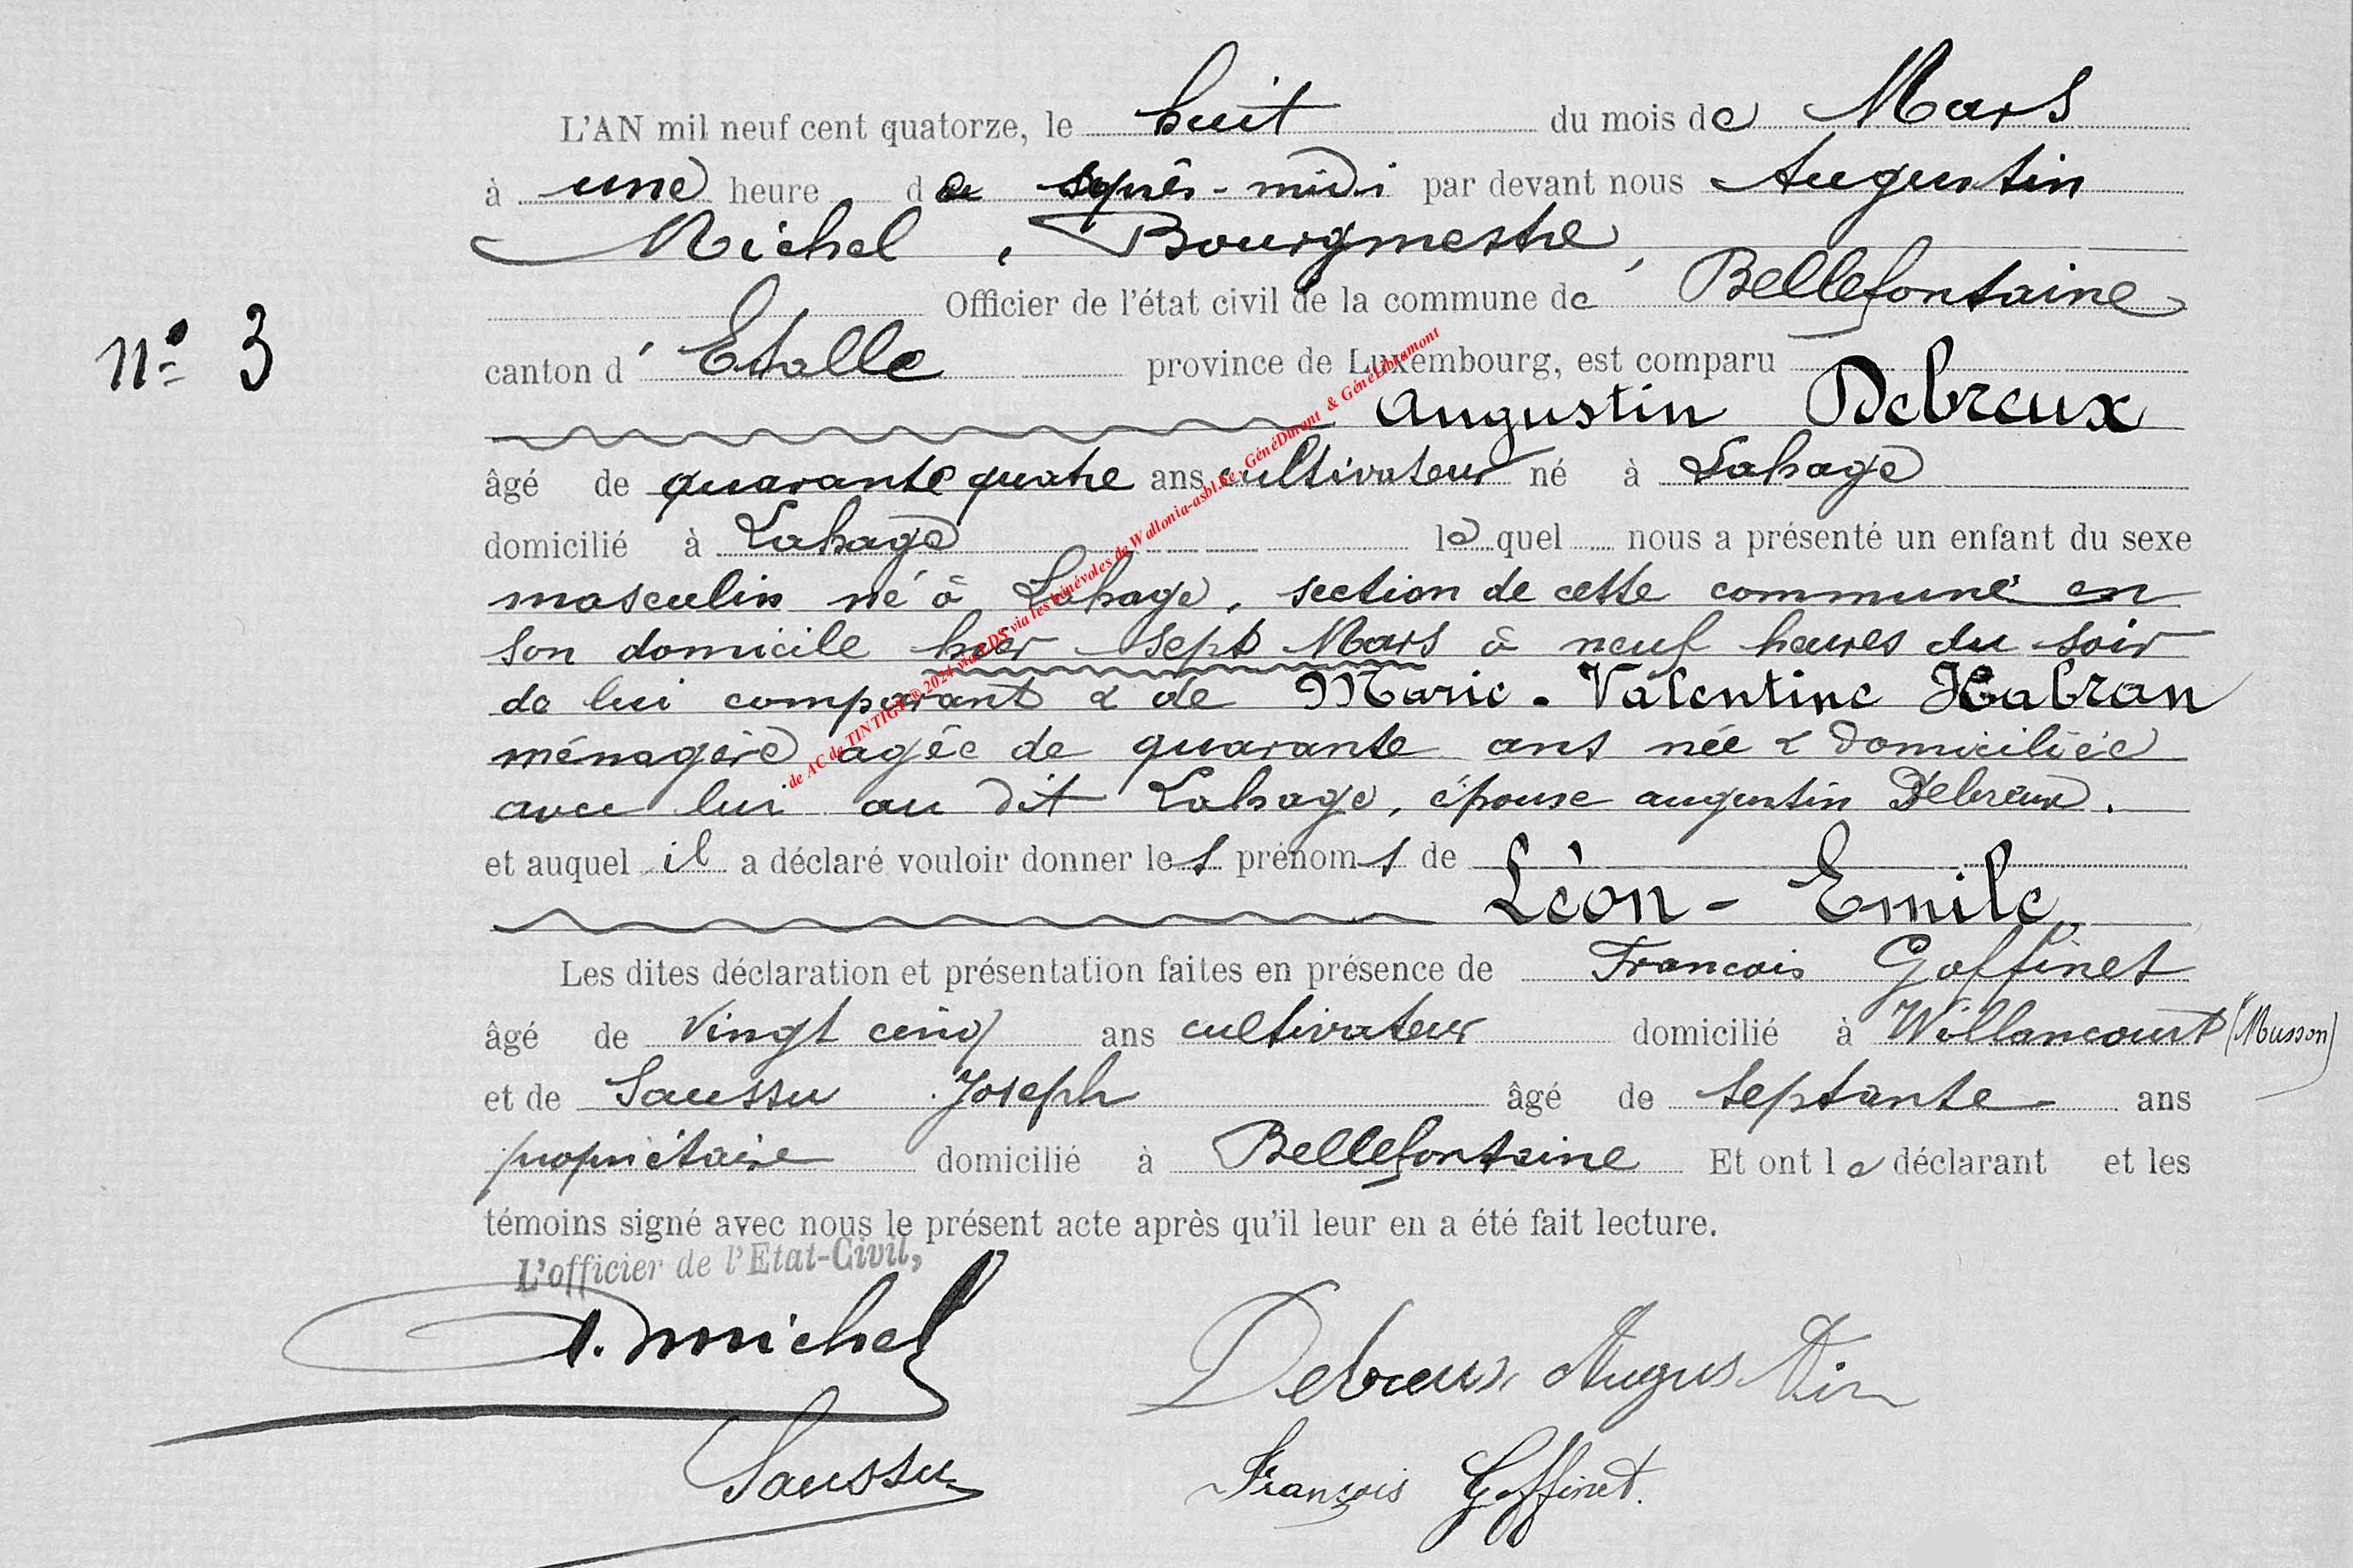 L'AN mil neuf cent quatorze, le huit du mois de Mars
à une heure de après-midi par devant nous Augustin
Michel, Bourgmestre,
Officier de l'état civil de la commune de Bellefontaine
n° 3
canton d'Etalle province de Luxembourg, est comparu
Augustin Debreux
âgé de quarante quatre ans cultivateur né à Lahage
domicilié à Lahage lequel nous a présenté un enfant du sexe
masculin né à Lahage, section de cette commune en
son domicile hier sept Mars à neuf heures du soir
de lui comparant & de Marie-Valentine Habran
ménagère agée de quarante ans née & domiciliée
avec lui au dit Lahage, épouse augustin Debreux.
et auquel il a déclaré vouloir donner les prénoms de
Léon-Emile,
Les dites déclaration et présentation faites en présence de Francois Goffinet
âgé de vingt cinq ans cultivateur domicilié à Willancourt (Musson)
et de Saussu Joseph âgé de septante ans
propriétaire domicilié à Bellefontaine Et ont le déclarant et les
témoins signé avec nous le présent acte après qu'il leur en a été fait lecture.
L'officier de l'Etat-Civil,
A. Michel
Debreux Augustin
Saussu
François Goffinet.
de AC de TINTIGNY® 2024 via LDS via les bénévoles de Wallonia-asbl.be, GénéDinant & GénéLibramont